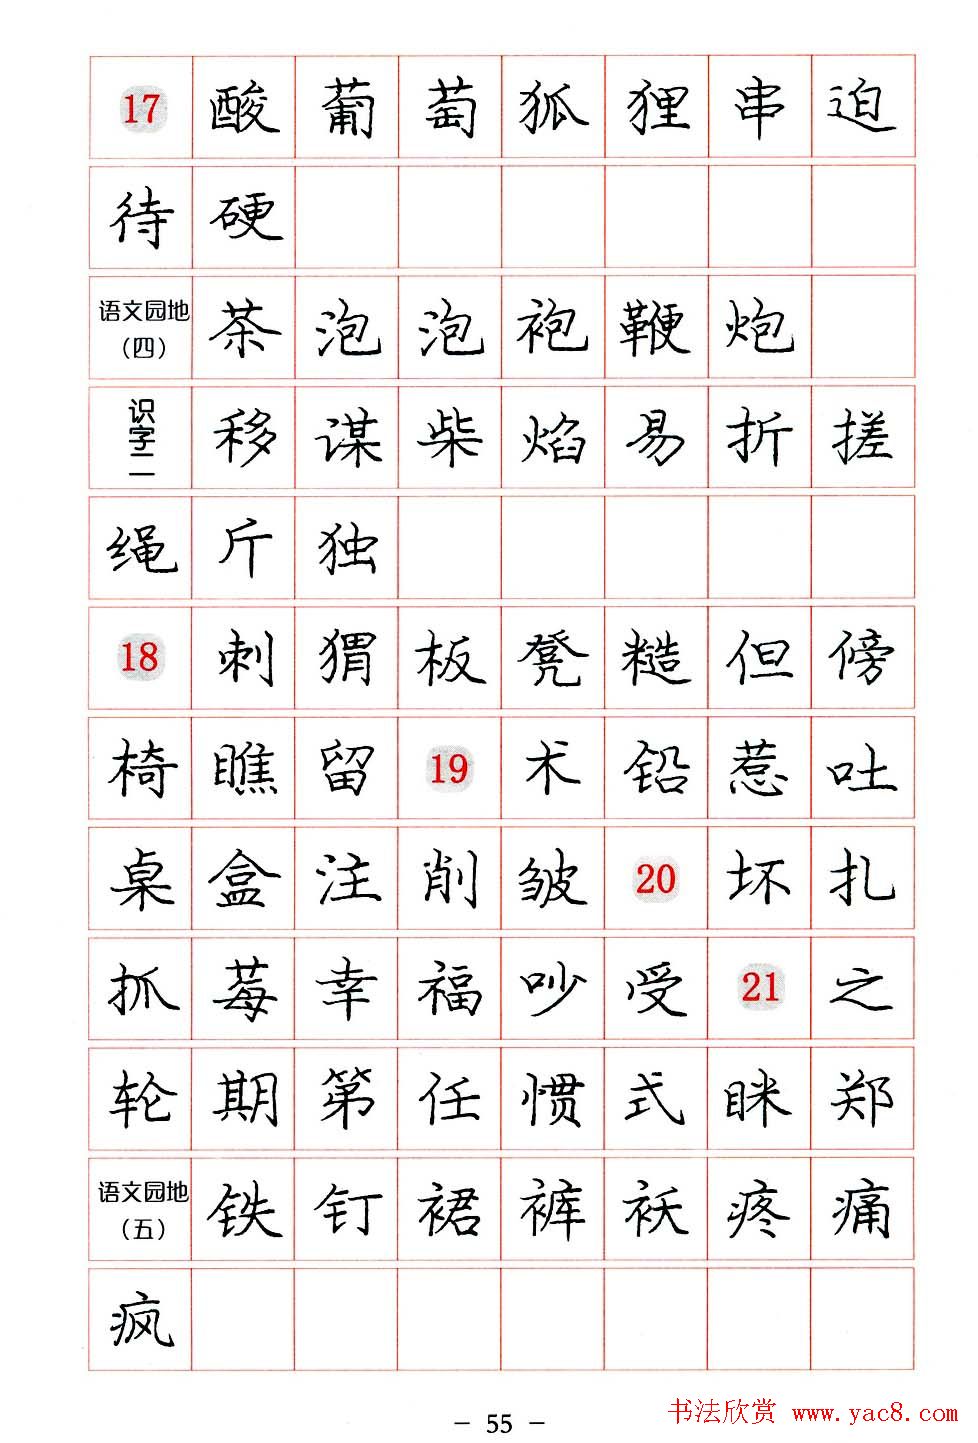 17 酸 葡 萄 狐 狸 串 迫
待 硬
语文园地（四） 茶 泡 泡 袍 鞭 炮
识字二 移 谋 柴 焰 易 折 搓
绳 斤 独
18 刺 猬 板 凳 糙 但 傍
椅 瞧 留 19 术 铅 惹 吐
桌 盒 注 削 皱 20 坏 扎
抓 莓 幸 福 吵 受 21 之
轮 期 第 任 惯 式 眯 郑
语文园地（五） 铁 钉 裙 裤 袄 疼 痛
疯
- 55 -
书法欣赏 www.yac8.com